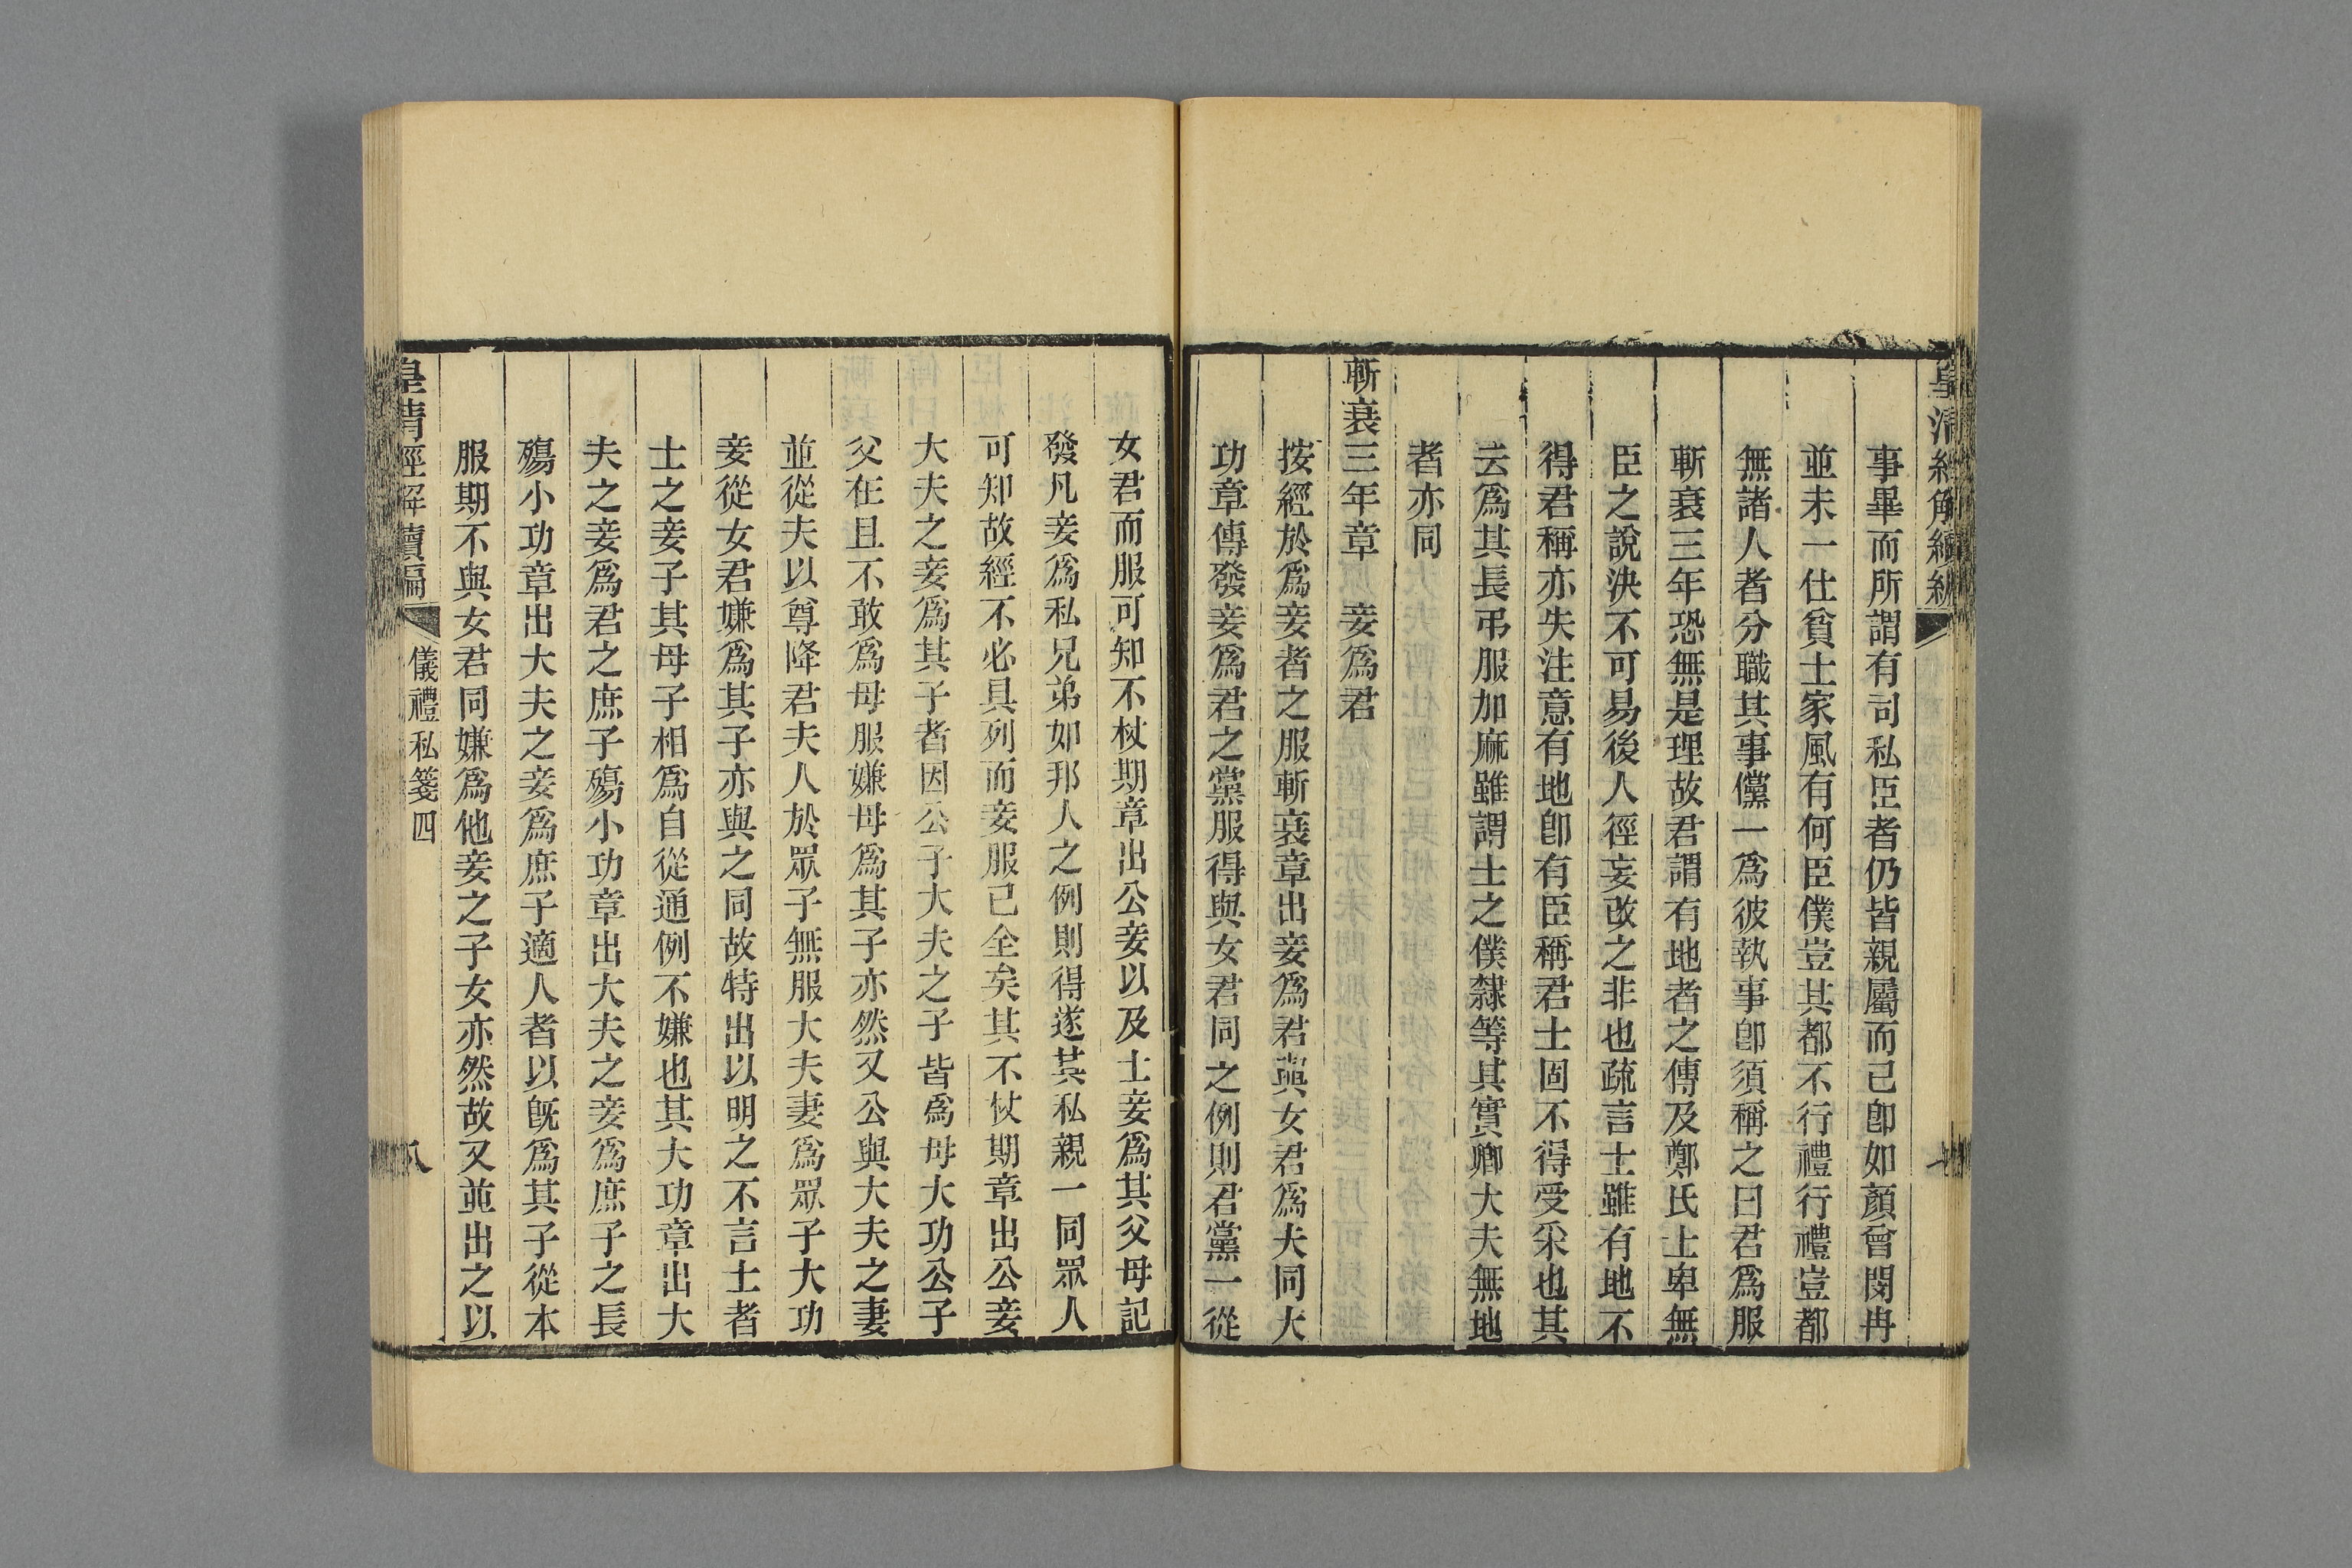 皇清經解續編
事畢而所謂有司私臣者仍皆親屬而已卽如顏曾閔冉
並未一仕貧士家風有何臣僕豈其都不行禮行禮豈都
無諸人者分職其事儻一爲彼執事卽須稱之曰君爲服
斬衰三年恐無是理故君謂有地者之傳及鄭氏士卑無
臣之說決不可易後人徑妄改之非也疏言士雖有地不
得君稱亦失注意有地卽有臣稱君士固不得受采也其
云爲其長弔服加麻雖謂士之僕隸等其實卿大夫無地
者亦同
斬衰三年章　妾爲君
按經於爲妾者之服斬衰章出妾爲君與女君爲夫同大
功章傳發妾爲君之黨服得與女君同之例則君黨一從
女君而服可知不杖期章出公妾以及士妾爲其父母記
發凡妾爲私兄弟如邦人之例則得遂其私親一同眾人
可知故經不必具列而妾服已全矣其不杖期章出公妾
大夫之妾爲其子者因公子大夫之子皆爲母大功公子
父在且不敢爲母服嫌母爲其子亦然又公與大夫之妻
並從夫以尊降君夫人於眾子無服大夫妻爲眾子大功
妾從女君嫌爲其子亦與之同故特出以明之不言士者
士之妾子其母子相爲自從通例不嫌也其大功章出大
夫之妾爲君之庶子殤小功章出大夫之妾爲庶子之長
殤小功章出大夫之妾爲庶子適人者以旣爲其子從本
服期不與女君同嫌爲他妾之子女亦然故又並出之以
皇清經解續編
儀禮私箋四
八